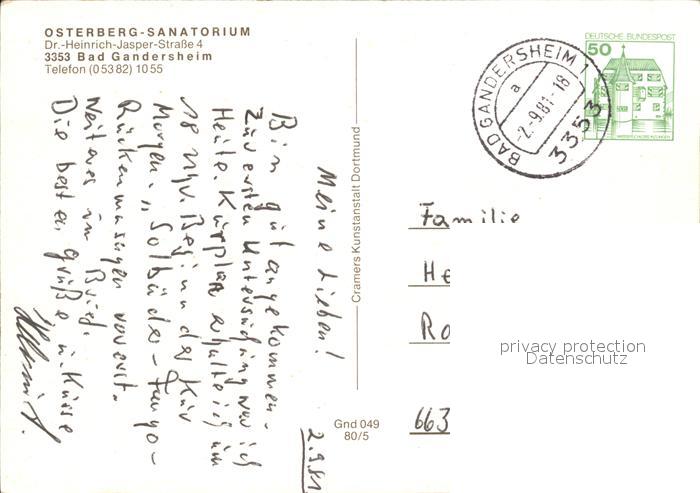 OSTERBERG-SANATORIUM
Dr.-Heinrich-Jasper-Straße 4
3353 Bad Gandersheim
Telefon (05382) 1055
DEUTSCHE BUNDESPOST
50
WASSERSCHLOSS INZLINGEN
BAD GANDERSHEIM 1
a
-2.-9.81-18
3353
2.9.81
Meine Lieben!
Bin gut angekommen.
Zur ersten Untersuchung war ich
Heute. Kurplan erhalte ich um
18 Uhr. Beginn der Kur
Morgen. „ Solbäder - Fango -
Rückenmassagen vorerst.
Weiteres im Brief.
Die besten Grüße u. Küsse
Helmut.
Cramers Kunstanstalt Dortmund
Gnd 049
80/5
Familie
He
Ro
663
privacy protection
Datenschutz